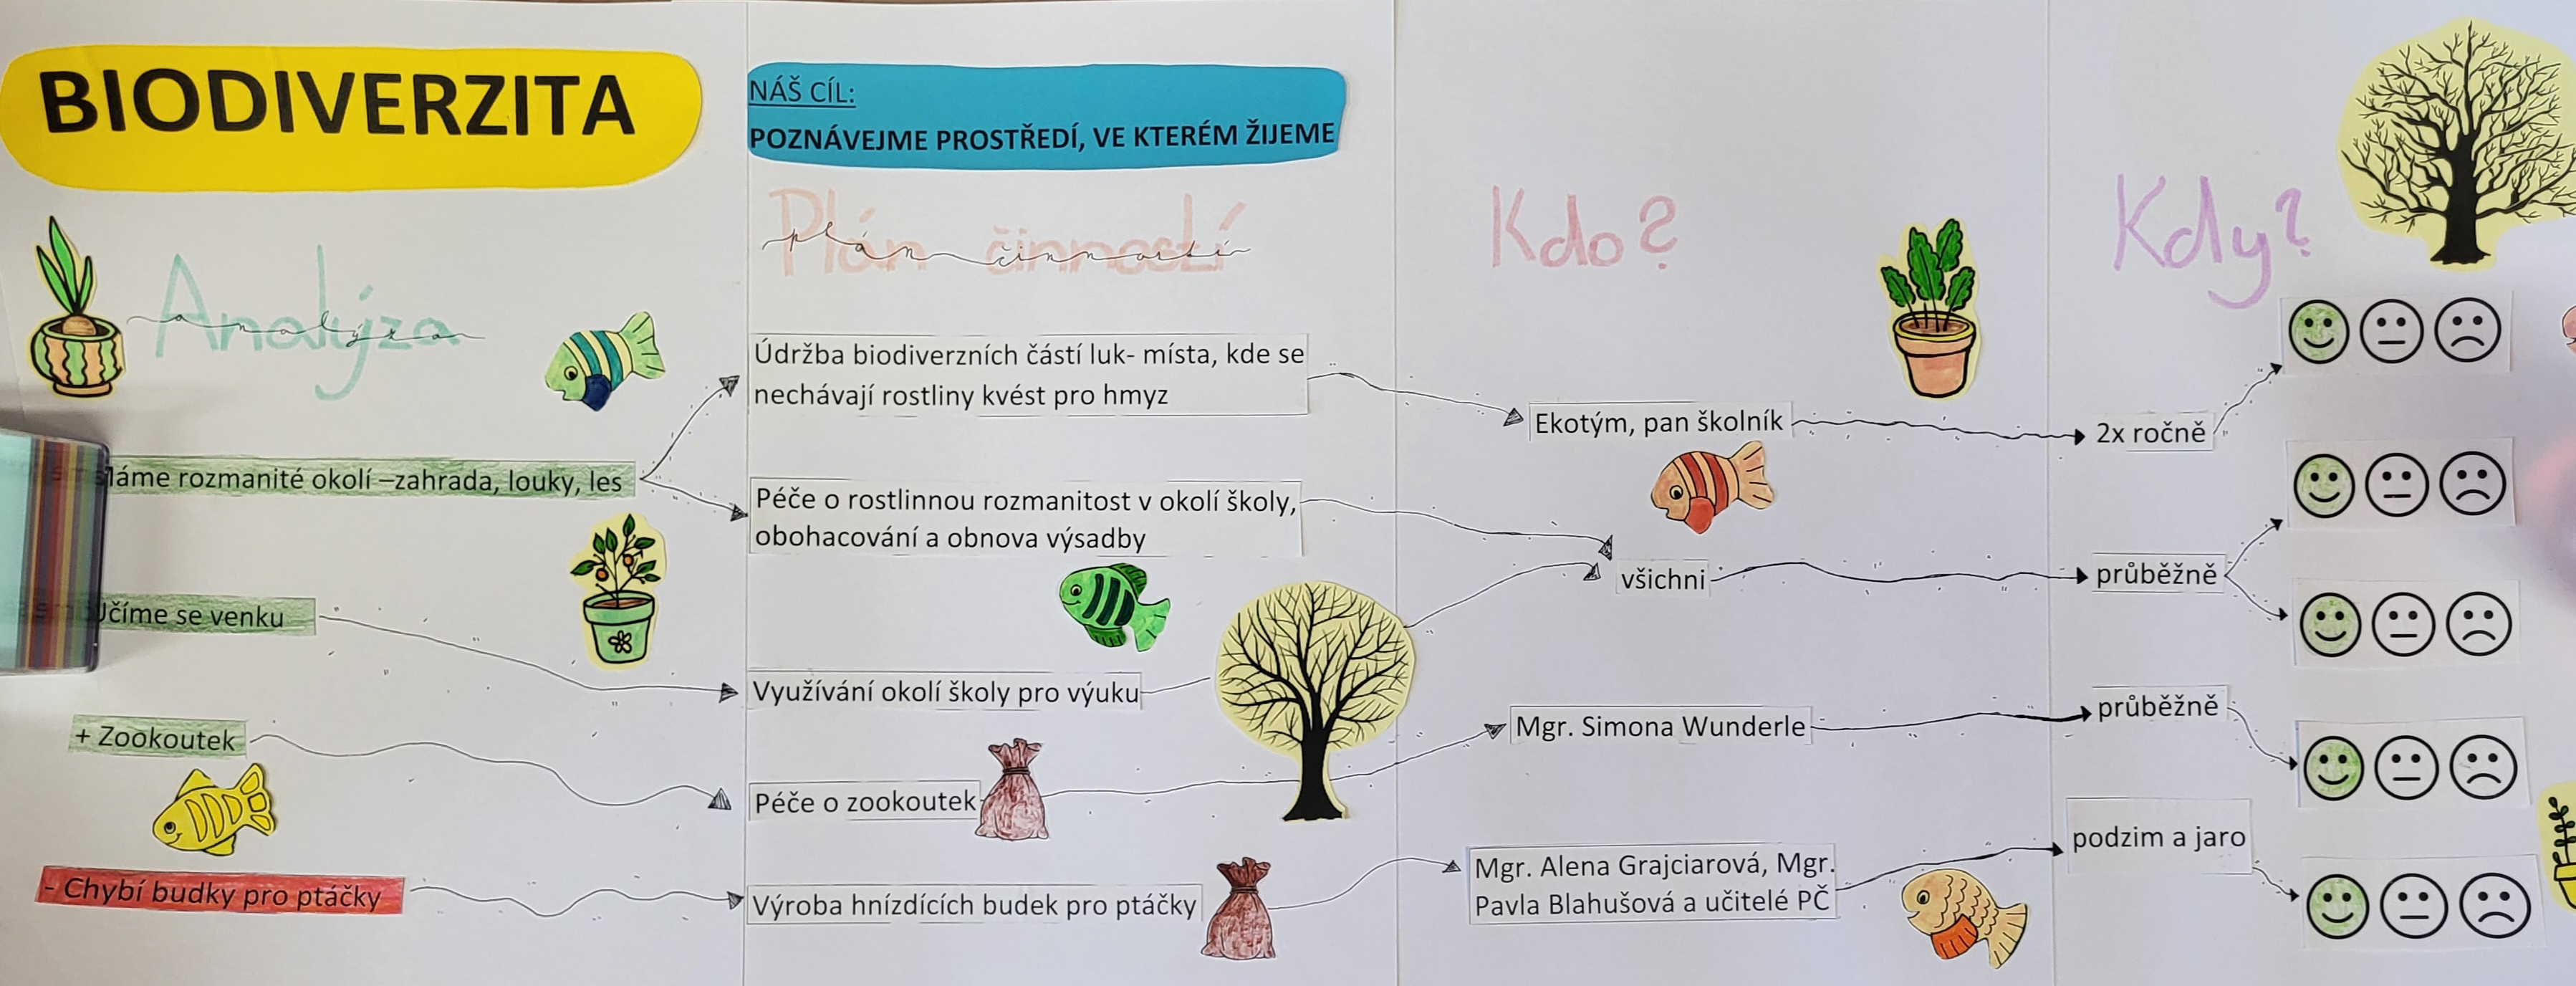 BIODIVERZITA
NÁŠ CÍL:
POZNÁVEJME PROSTŘEDÍ, VE KTERÉM ŽIJEME
Analýza
analýza
Plán činností
plán činností
Kdo?
Kdy?
Máme rozmanité okolí –zahrada, louky, les
Učíme se venku
+ Zookoutek
- Chybí budky pro ptáčky
Údržba biodiverzních částí luk- místa, kde se
nechávají rostliny kvést pro hmyz
Péče o rostlinnou rozmanitost v okolí školy,
obohacování a obnova výsadby
Využívání okolí školy pro výuku
Péče o zookoutek
Výroba hnízdících budek pro ptáčky
Ekotým, pan školník
všichni
Mgr. Simona Wunderle
Mgr. Alena Grajciarová, Mgr.
Pavla Blahušová a učitelé PČ
2x ročně
průběžně
průběžně
podzim a jaro